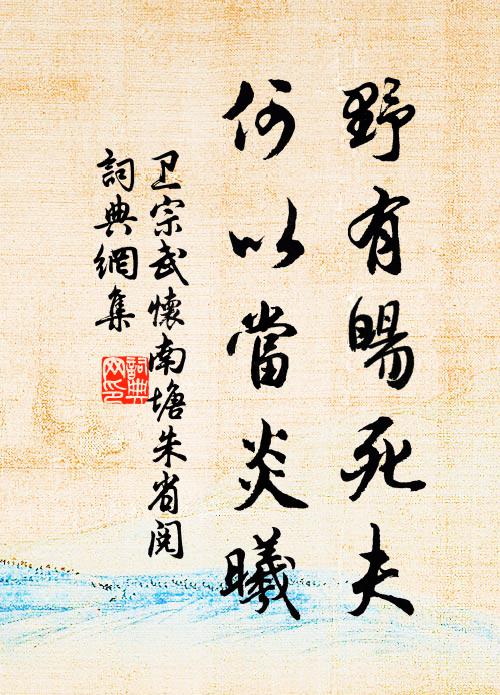 野有暘死夫
何以當炎曦
卫宗武懷南塘朱省閱
詞典網集
詞典
网印